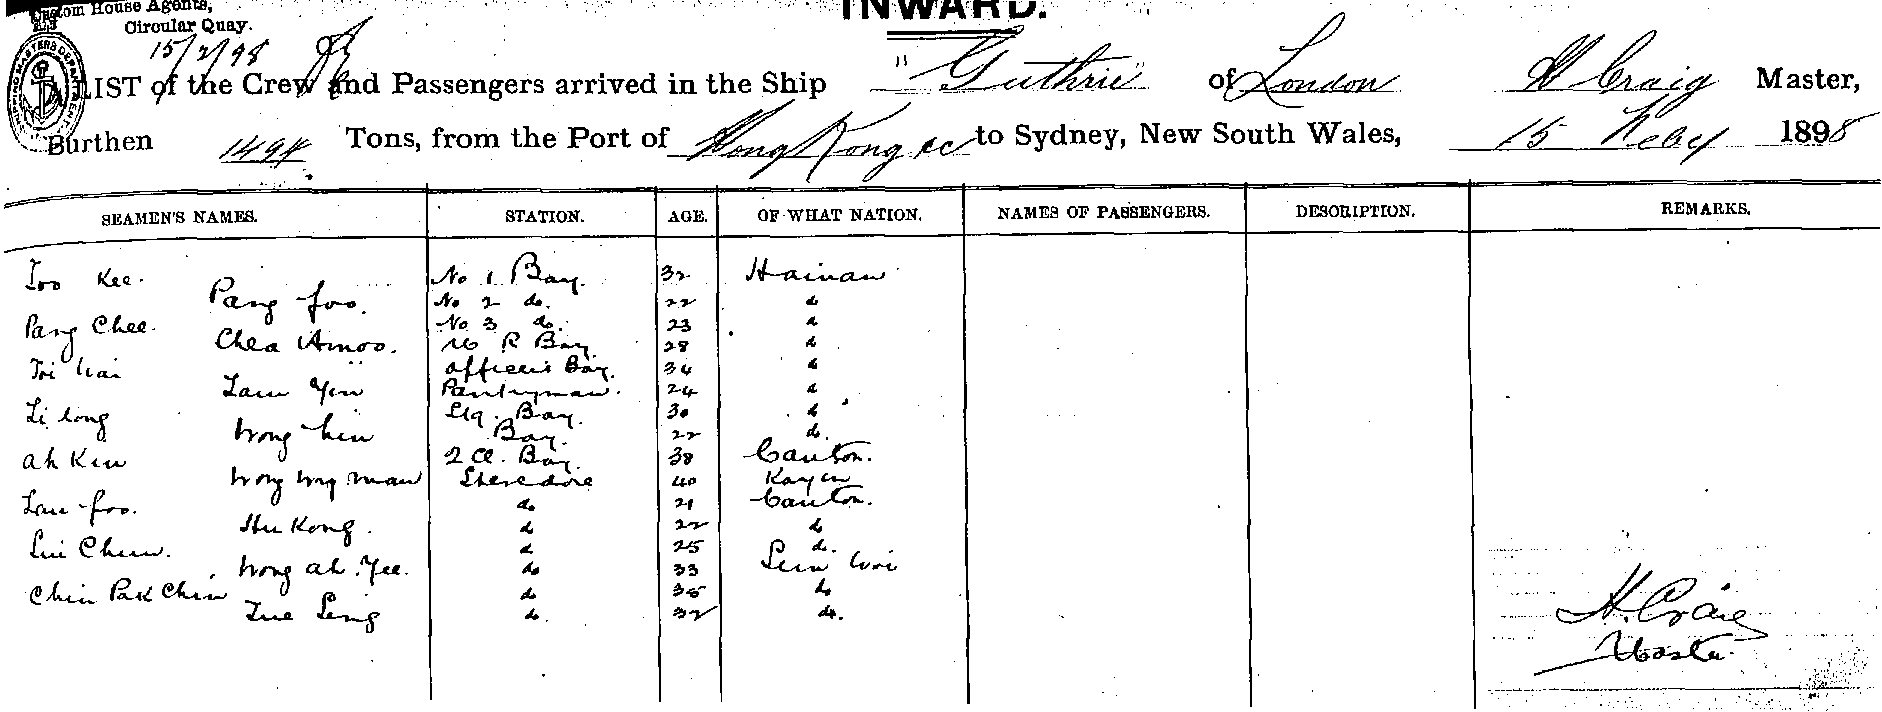 INWARD.
Custom House Agents,
Circular Quay.
15/2/98
A LIST of the Crew and Passengers arrived in the Ship "Guthrie" of London H Craig Master,
Burthen 1494 Tons, from the Port of Hong Kong &c to Sydney, New South Wales, 15 Feby 1898
SEAMEN'S NAMES. STATION. AGE. OF WHAT NATION. NAMES OF PASSENGERS. DESCRIPTION. REMARKS.
Too Kee. No 1 Boy. 32 Hainan
Pang foo. No 2 do. 22 do
Pang Chee. No 3 do. 23 do
Chea Amoo. M R Boy 28 do
Toi Wai Officers Boy. 34 do
Lam Yin Pantryman. 24 do
Li Long Stg. Boy. 30 do
Wong hin Boy. 22 do.
Ah Kin 2 Cl. Boy. 38 Canton.
Wong Wing man Stevedore 40 Kayin
Lau foo. do 21 Canton.
Hu Kong. do 22 do
Lui Chun. do 25 do.
Wong Ah Yee. do 33 Sun Woi
Chin Pak Chin do 35 do
Tue Seng do. 32 do.
H. Craig
Master